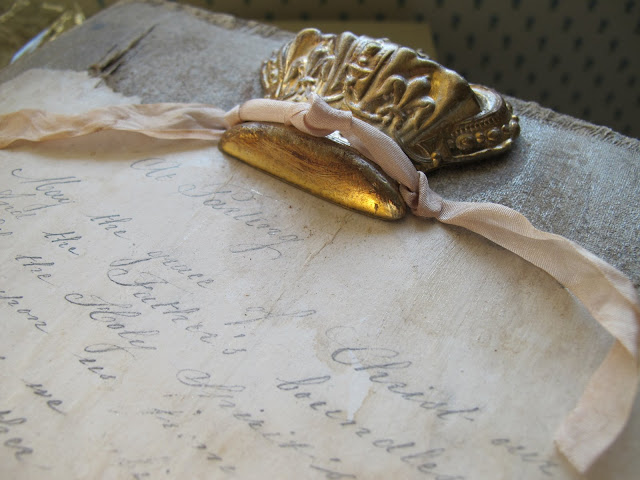 At Parting
May the grace of Christ our
And the Father's boundle
the Holy Spirit's
upon us
we